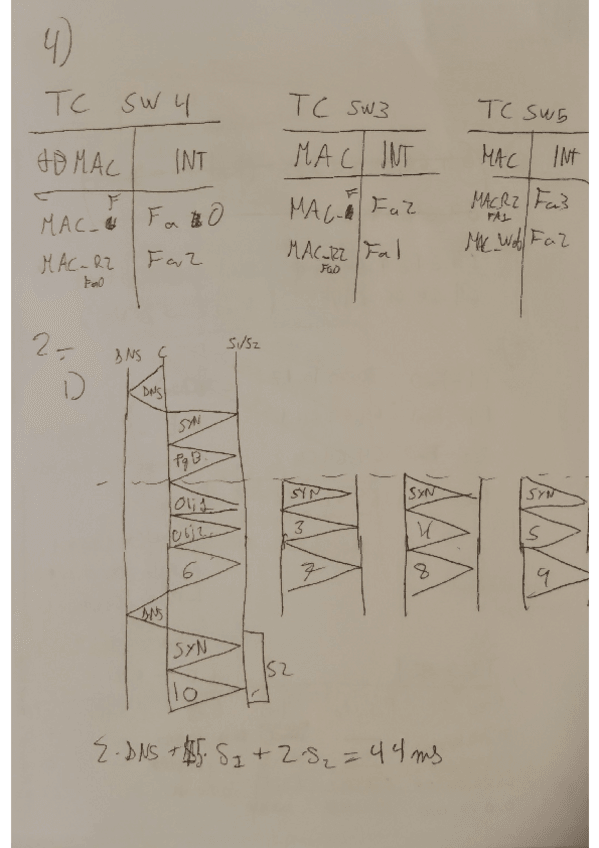 4)
TC SW 4
MAC INT
MAC_F Fa 0
MAC_R2 Fa0 Fa2
TC SW3
MAC INT
MAC_F Fa2
MAC_R2 Fa0 Fa1
TC SW5
MAC INT
MAC_R2 FA1 Fa3
MAC_Web Fa2
2-
1)
DNS C S1/S2
DNS
SYN
PgB
Obj1
Obj2
6
DNS
SYN
10
S2
SYN
3
7
SYN
4
8
SYN
5
9
2·DNS + 5·S1 + 2·S2 = 44 ms